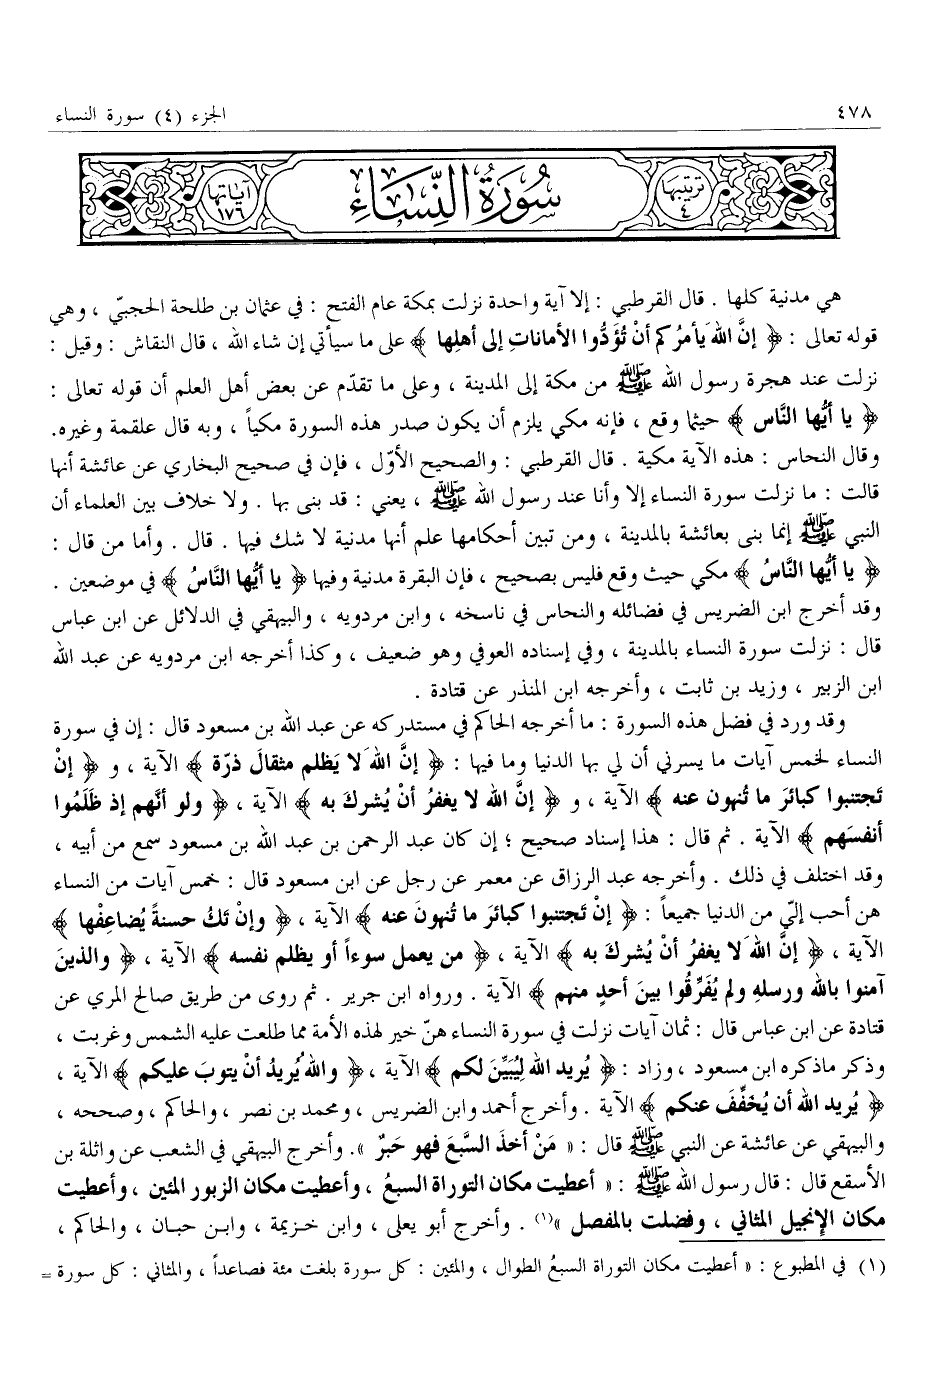 ٤٧٨
الجزء (٤) سورة النساء
ترتيبها ٤
سُورَةُ النِّسَاءِ
آياتها ١٧٦
هي مدنية كلها . قال القرطبي : إلا آية واحدة نزلت بمكة عام الفتح : في عثمان بن طلحة الحجبيّ ، وهي
قوله تعالى : ﴿ إنَّ اللهَ يأمرُكم أنْ تُؤَدُّوا الأماناتِ إلى أهلِها ﴾ على ما سيأتي إن شاء الله ، قال النقاش : وقيل :
نزلت عند هجرة رسول الله ﷺ من مكة إلى المدينة ، وعلى ما تقدّم عن بعض أهل العلم أن قوله تعالى :
﴿ يا أيُّها النَّاس ﴾ حيثما وقع ، فإنه مكي يلزم أن يكون صدر هذه السورة مكياً ، وبه قال علقمة وغيره.
وقال النحاس : هذه الآية مكية . قال القرطبي : والصحيح الأوّل ، فإن في صحيح البخاري عن عائشة أنها
قالت : ما نزلت سورة النساء إلا وأنا عند رسول الله ﷺ ، يعني : قد بنى بها . ولا خلاف بين العلماء أن
النبي ﷺ إنما بنى بعائشة بالمدينة ، ومن تبين أحكامها علم أنها مدنية لا شك فيها . قال . وأما من قال :
﴿ يا أيُّها النَّاسُ ﴾ مكي حيث وقع فليس بصحيح ، فإن البقرة مدنية وفيها ﴿ يا أيُّها النَّاسُ ﴾ في موضعين .
وقد أخرج ابن الضريس في فضائله والنحاس في ناسخه ، وابن مردويه ، والبيهقي في الدلائل عن ابن عباس
قال : نزلت سورة النساء بالمدينة ، وفي إسناده العوفي وهو ضعيف ، وكذا أخرجه ابن مردويه عن عبد الله
ابن الزبير ، وزيد بن ثابت ، وأخرجه ابن المنذر عن قتادة .
وقد ورد في فضل هذه السورة : ما أخرجه الحاكم في مستدركه عن عبد الله بن مسعود قال : إن في سورة
النساء لخمس آيات ما يسرني أن لي بها الدنيا وما فيها : ﴿ إنَّ اللهَ لا يَظلم مثقالَ ذرّة ﴾ الآية ، و ﴿ إنْ
تَجتنبوا كبائرَ ما تُنهون عنه ﴾ الآية ، و ﴿ إنَّ الله لا يغفرُ أنْ يُشركَ به ﴾ الآية ، ﴿ ولو أنَّهم إذ ظَلَمُوا
أنفسَهم ﴾ الآية . ثم قال : هذا إسناد صحيح ؛ إن كان عبد الرحمن بن عبد الله بن مسعود سمع من أبيه ،
وقد اختلف في ذلك . وأخرجه عبد الرزاق عن معمر عن رجل عن ابن مسعود قال : خمس آيات من النساء
هن أحب إليّ من الدنيا جميعاً : ﴿ إنْ تَجتنبوا كبائرَ ما تُنهونَ عنه ﴾ الآية ، ﴿ وإنْ تَكُ حسنةً يُضاعِفْها ﴾
الآية ، ﴿ إنَّ اللهَ لا يغفرُ أنْ يُشركَ به ﴾ الآية ، ﴿ من يعمل سوءاً أو يظلم نفسه ﴾ الآية ، ﴿ والذينَ
آمنوا بالله ورسلهِ ولم يُفَرِّقُوا بينَ أحدٍ منهم ﴾ الآية . ورواه ابن جرير . ثم روى من طريق صالح المري عن
قتادة عن ابن عباس قال : ثمان آيات نزلت في سورة النساء هنّ خير لهذه الأمة مما طلعت عليه الشمس وغربت ،
وذكر ماذكره ابن مسعود ، وزاد : ﴿ يُريد الله لِيُبَيِّنَ لكم ﴾ الآية ، ﴿ واللهُ يُريدُ أنْ يتوبَ عليكم ﴾ الآية ،
﴿ يُريد الله أن يُخَفِّفَ عنكم ﴾ الآية . وأخرج أحمد وابن الضريس ، ومحمد بن نصر ، والحاكم ، وصححه ،
والبيهقي عن عائشة عن النبي ﷺ قال : « مَنْ أخذَ السَّبعَ فهو حَبرٌ ». وأخرج البيهقي في الشعب عن واثلة بن
الأسقع قال : قال رسول الله ﷺ : « أعطيت مكان التوراة السبعُ ، وأعطيت مكان الزبور المئين ، وأعطيت
مكان الإنجيل المثاني ، وفضلت بالمفصل »(١) . وأخرج أبو يعلى ، وابن خزيمة ، وابن حبان ، والحاكم ،
(١) في المطبوع : « أعطيت مكان التوراة السبعُ الطوال ، والمئين : كل سورة بلغت مئة فصاعداً ، والمثاني : كل سورة =